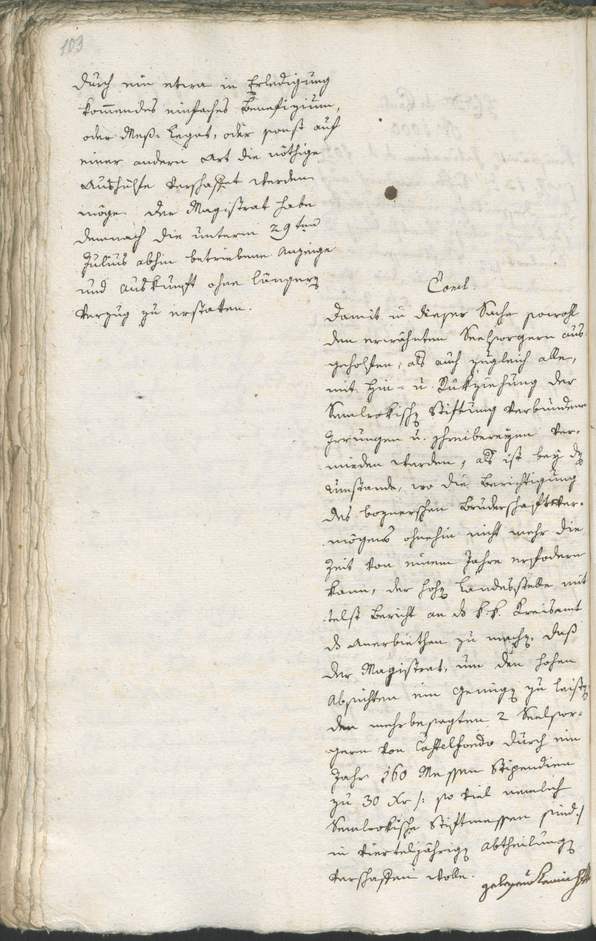 103
durch ein etwa in Erledigung
kommendes einfaches Benefizium,
oder Meß-Legat, oder sonst auf
einer andern Art die nöthige
Aushülfe verschaffet werden
möge. Der Magistrat habe
demnach die unterm 29ten
Julius abhin betriebene Anzeige
und Auskunft ohne längern
Verzug zu erstaten.
Concl:
Damit in dieser Sache sowohl
den erwähnten Seelsorgern aus
geholfen, als auch zugleich alle,
mit Hin- u. Rükziehung der
Stiftung verbundene
Irrungen u. Schreibereyen ver-
mieden werden, als ist bey dem
Umstande, wo die Berichtigung
des boznerschen Bruderschaftsver-
mögens ohnehin nicht mehr die
Zeit von einem Jahre erfodern
kann, der hohen Landesstelle mit
telst Bericht an das k.k. Kreisamt
das Anerbiethen zu machen, daß
der Magistrat, um den hohen
Absichten ein Genügen zu leisten
den mehrbesagten 2 Seelsor-
gern von Castelfondo durch ein
Jahr 160 Messen Stipendien
zu 30 Xr /: so viel nemlich
Stiftmessen sind :/
in vierteljährigen Abtheilungen
verschaffen wolle.